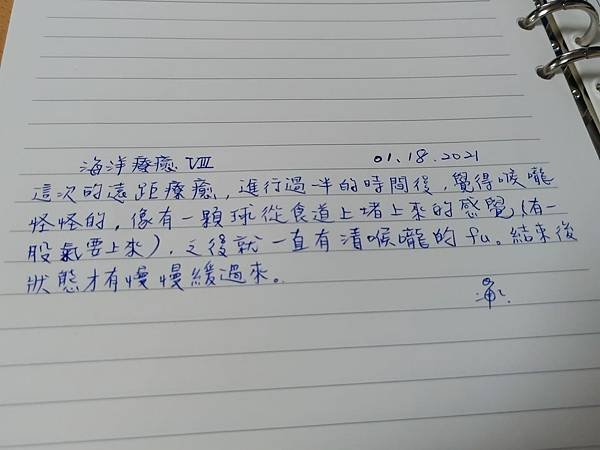 海洋療癒 VIII 01.18.2021
這次的遠距療癒，進行過一半的時間後，覺得喉嚨
怪怪的，像有一顆球從食道上堵上來的感覺（有一
股氣要上來），之後就一直有清喉嚨的 fu。結束後
狀態才有慢慢緩過來。